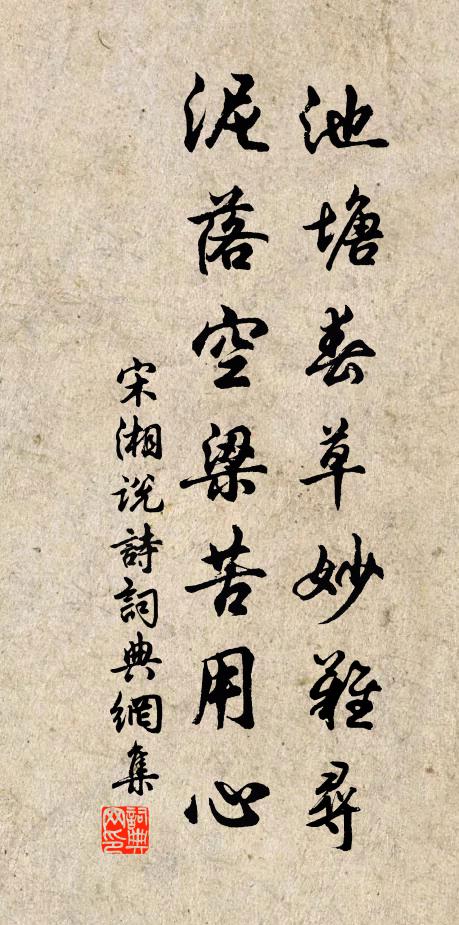 池塘春草妙難尋
泥落空梁苦用心
宋湘說詩詞典網集
詞典网印